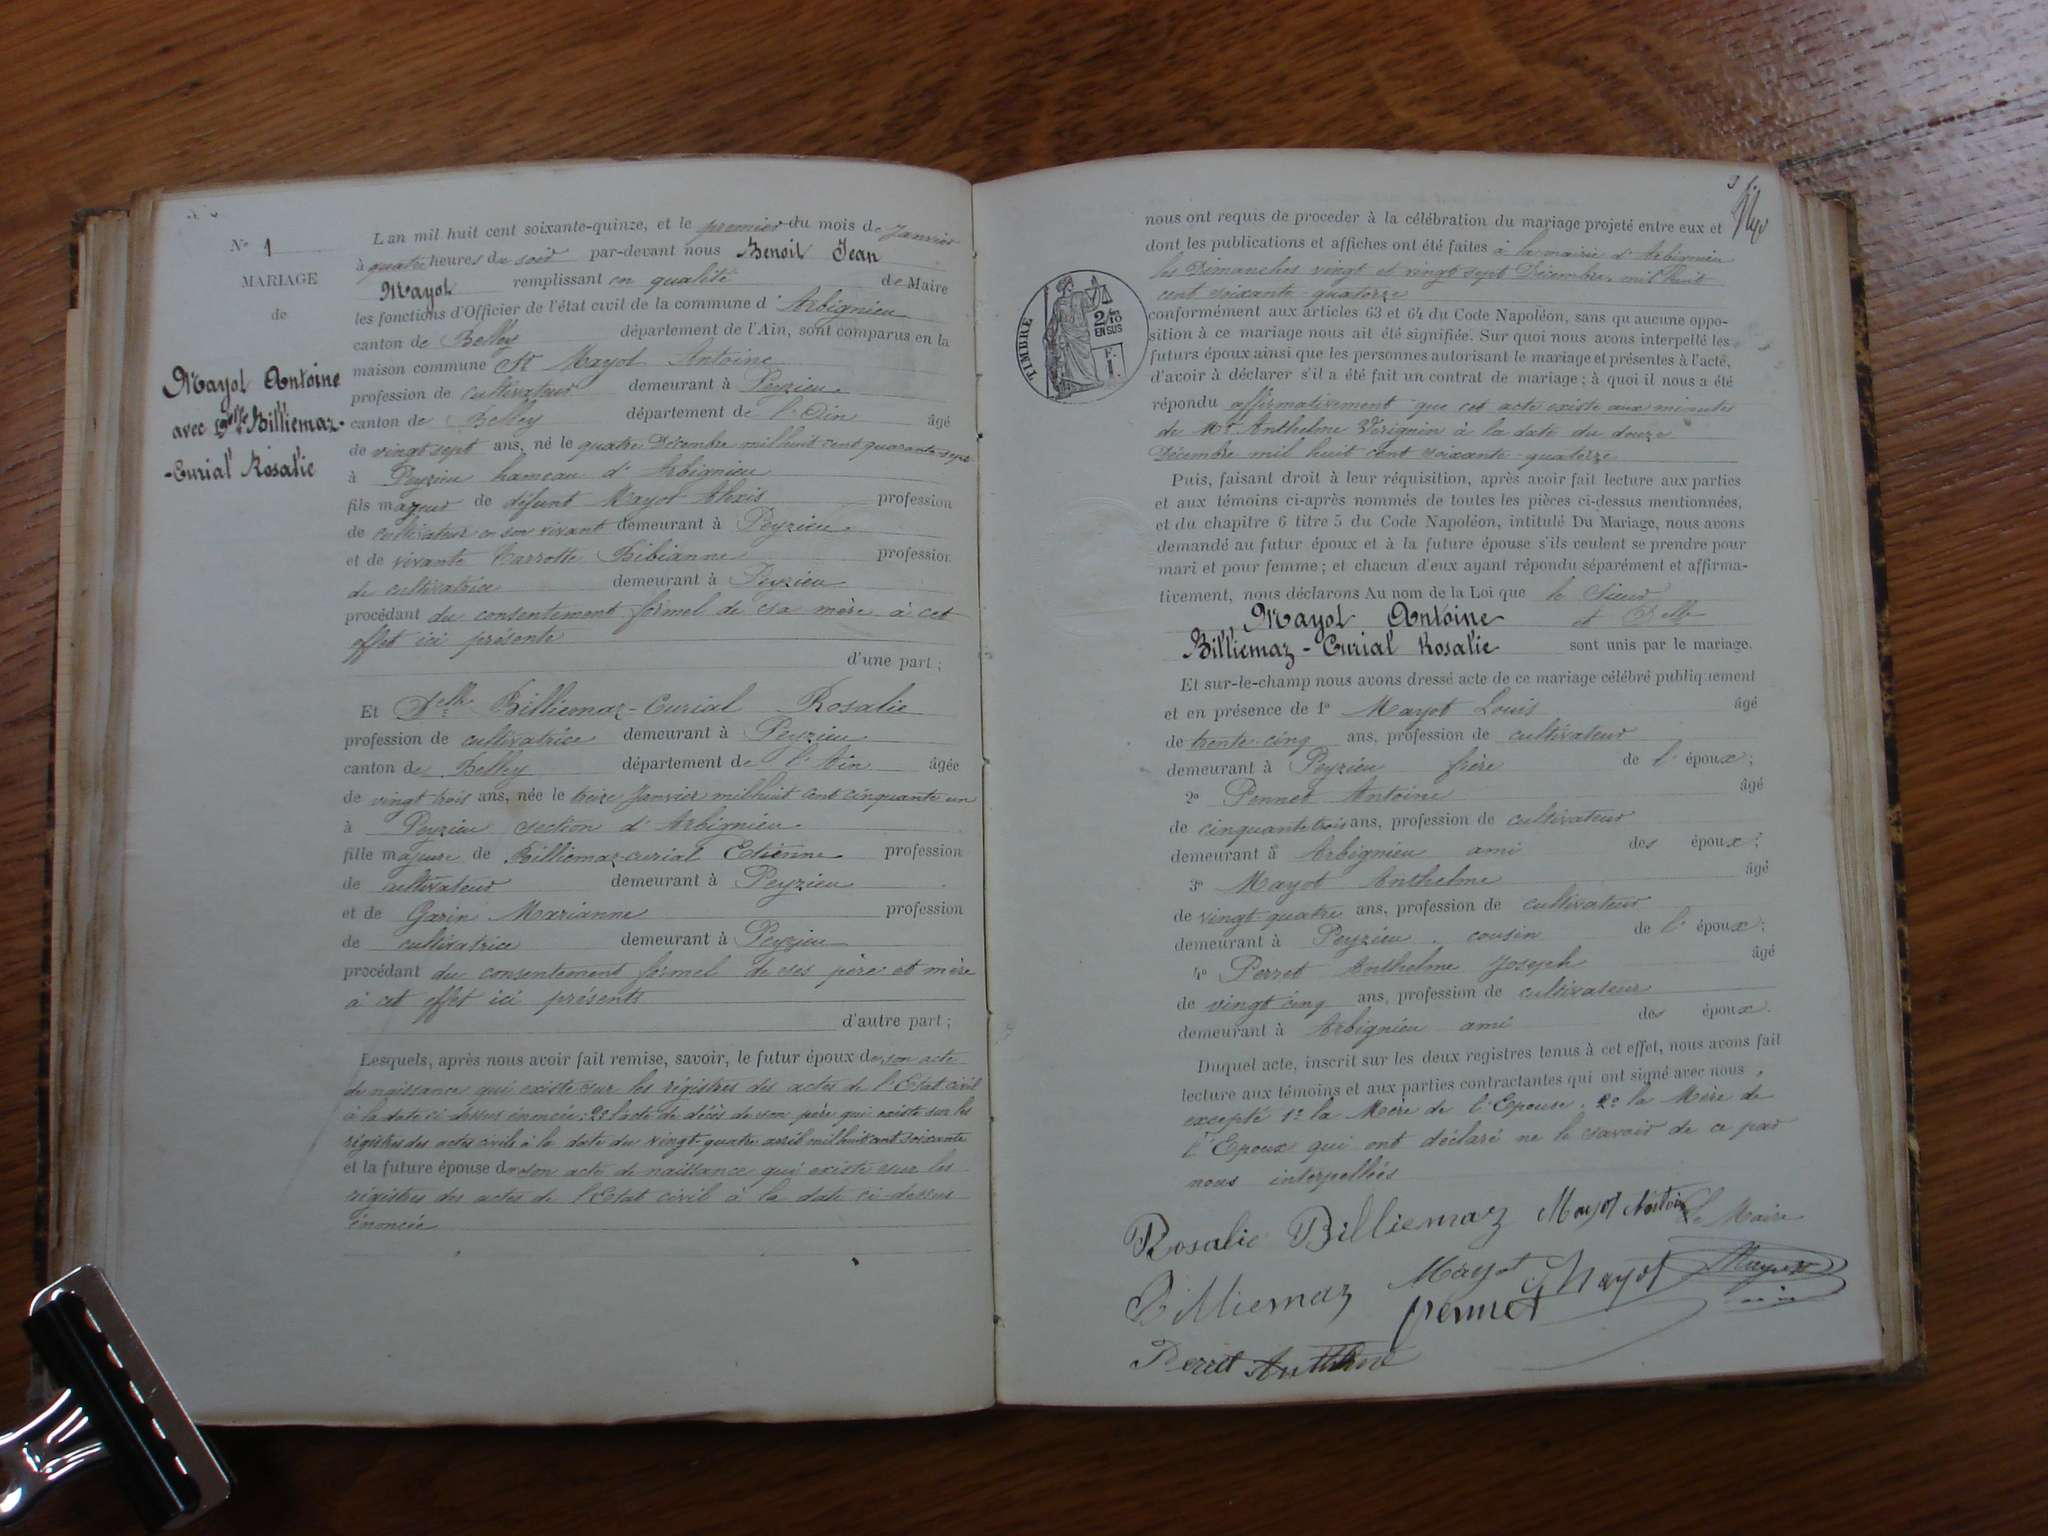 N° 1
MARIAGE
de
Mayot Antoine
avec Delle Billiemaz-
-Curial Rosalie
L'an mil huit cent soixante-quinze, et le premier du mois de Janvier
à quatre heures du soir par-devant nous Benoit Jean
Mayot remplissant en qualité de Maire
les fonctions d'Officier de l'état civil de la commune d'Arbignieu
canton de Belley département de l'Ain, sont comparus en la
maison commune Sr Mayot Antoine
profession de cultivateur demeurant à Peyzieu
canton de Belley département de l'Ain âgé
de vingt sept ans, né le quatre Décembre mil huit cent quarante-sept
à Peyzieu hameau d'Arbignieu
fils majeur de défunt Mayot Alexis profession
de cultivateur en son vivant demeurant à Peyzieu
et de vivante Carrotte Bibianne profession
de cultivatrice demeurant à Peyzieu
procédant du consentement formel de sa mère à cet
effet ici présente
d'une part ;
Et Delle Billiemaz-Curial Rosalie
profession de cultivatrice demeurant à Peyzieu
canton de Belley département de l'Ain âgée
de vingt trois ans, née le treize Janvier mil huit cent cinquante un
à Peyzieu section d'Arbignieu
fille majeure de Billiemaz-curial Etienne profession
de cultivateur demeurant à Peyzieu
et de Garin Marianne profession
de cultivatrice demeurant à Peyzieu
procédant du consentement formel de ses père et mère
à cet effet ici présents
d'autre part ;
Lesquels, après nous avoir fait remise, savoir, le futur époux de son acte
de naissance qui existe sur les régistres des actes de l'Etat civil
à la date ci dessus énoncée : 2° l'acte de décès de son père qui existe sur les
régistres des actes civils à la date du vingt-quatre avril mil huit cent soixante
et la future épouse de son acte de naissance qui existe sur les
régistres des actes de l'Etat civil à la date ci-dessus
énoncée
nous ont requis de proceder à la célébration du mariage projeté entre eux et
dont les publications et affiches ont été faites à la mairie d'Arbignieu
les Dimanches vingt et vingt sept Décembre, mil huit
cent soixante-quatorze
TIMBRE
2/10
EN SUS
F.
1.
conformément aux articles 63 et 64 du Code Napoléon, sans qu'aucune oppo-
sition à ce mariage nous ait été signifiée. Sur quoi nous avons interpellé les
futurs époux ainsi que les personnes autorisant le mariage et présentes à l'acte,
d'avoir à déclarer s'il a été fait un contrat de mariage ; à quoi il nous a été
répondu affirmativement que cet acte existe aux minutes
de Mr Anthelme Vérignin à la date du douze
Décembre mil huit cent soixante-quatorze
Puis, faisant droit à leur réquisition, après avoir fait lecture aux parties
et aux témoins ci-après nommés de toutes les pièces ci-dessus mentionnées,
et du chapitre 6 titre 5 du Code Napoléon, intitulé Du Mariage, nous avons
demandé au futur époux et à la future épouse s'ils veulent se prendre pour
mari et pour femme ; et chacun d'eux ayant répondu séparément et affirma-
tivement, nous déclarons Au nom de la Loi que le Sieur
Mayot Antoine et Delle
Billiemaz-Curial Rosalie sont unis par le mariage.
Et sur-le-champ nous avons dressé acte de ce mariage célébré publiquement
et en présence de 1° Mayot Louis âgé
de trente-cinq ans, profession de cultivateur
demeurant à Peyzieu frère de l'époux ;
2° Pennet Antoine âgé
de cinquante trois ans, profession de cultivateur
demeurant à Arbignieu ami des époux ;
3° Mayot Anthelme âgé
de vingt-quatre ans, profession de cultivateur
demeurant à Peyzieu cousin de l'époux ;
4° Perret Anthelme Joseph âgé
de vingt cinq ans, profession de cultivateur
demeurant à Arbignieu ami des époux.
Duquel acte, inscrit sur les deux registres tenus à cet effet, nous avons fait
lecture aux témoins et aux parties contractantes qui ont signé avec nous,
excepté 1° la Mère de l'Epouse. 2° la Mère de
l'Epoux qui ont déclaré ne le savoir de ce par
nous interpellées
Rosalie Billiemaz Mayot Antoine Le Maire
Billiemaz Mayot Mayot Mayot
pennet
Perret Anthelme